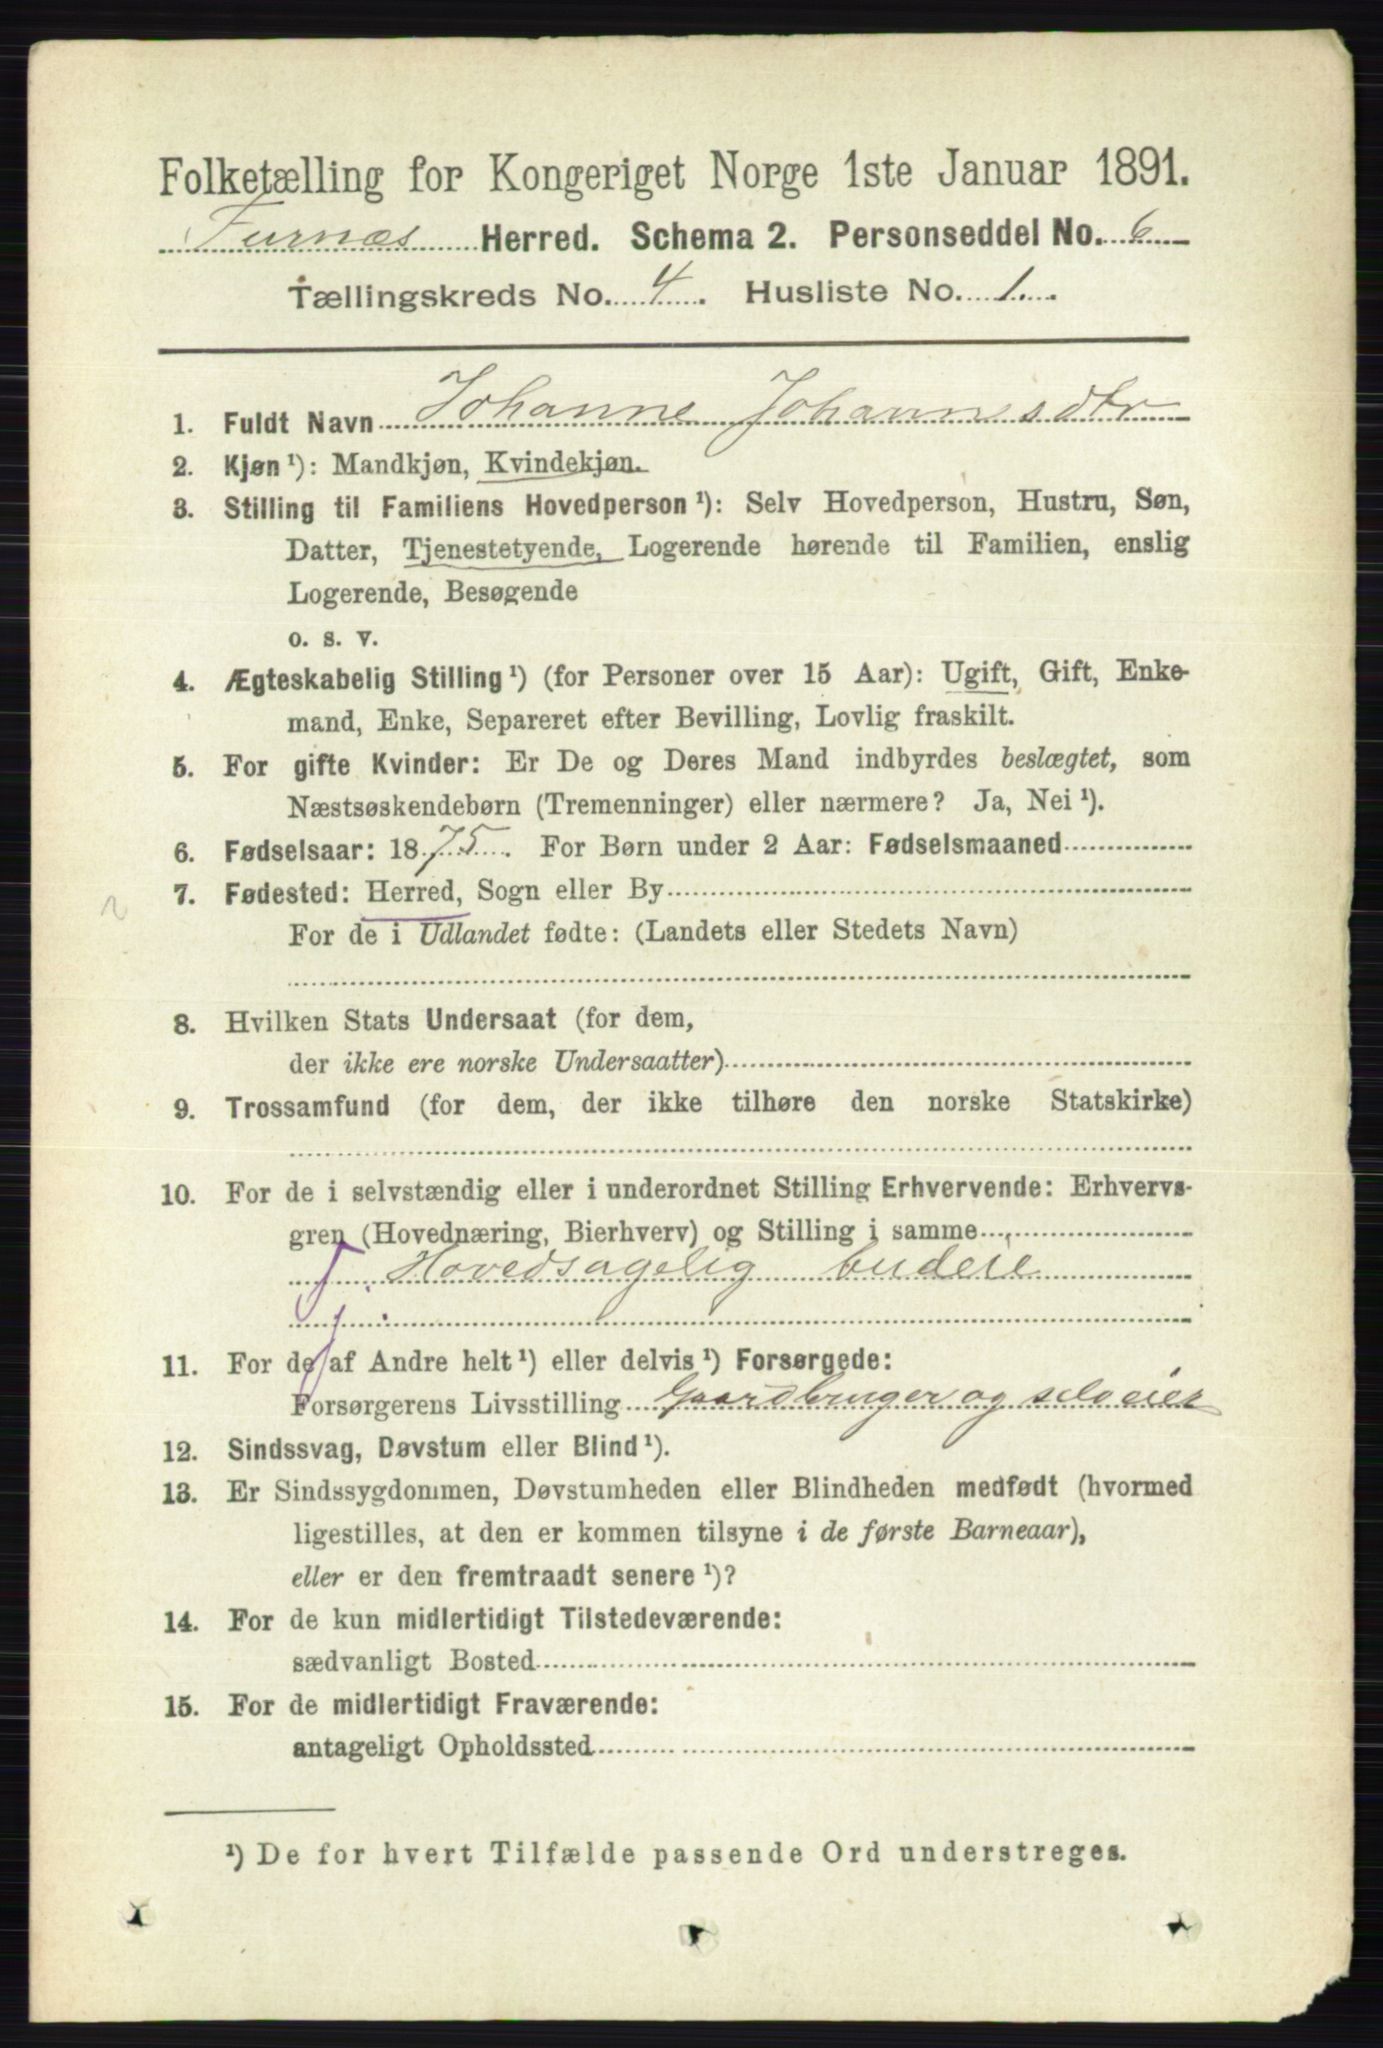 Folketælling for Kongeriget Norge 1ste Januar 1891.
Furnæs Herred. Schema 2. Personseddel No. 6
Tællingskreds No. 4. Husliste No. 1.
1. Fuldt Navn Johanne Johannesdtr
2. Kjøn ¹): Mandkjøn, Kvindekjøn.
3. Stilling til Familiens Hovedperson ¹): Selv Hovedperson, Hustru, Søn,
Datter, Tjenestetyende, Logerende hørende til Familien, enslig
Logerende, Besøgende
o. s. v.
4. Ægteskabelig Stilling ¹) (for Personer over 15 Aar): Ugift, Gift, Enke-
mand, Enke, Separeret efter Bevilling, Lovlig fraskilt.
5. For gifte Kvinder: Er De og Deres Mand indbyrdes beslægtet, som
Næstsøskendebørn (Tremenninger) eller nærmere? Ja, Nei ¹).
6. Fødselsaar: 1875. For Børn under 2 Aar: Fødselsmaaned
7. Fødested: Herred, Sogn eller By
2
For de i Udlandet fødte: (Landets eller Stedets Navn)
8. Hvilken Stats Undersaat (for dem,
der ikke ere norske Undersaatter)
9. Trossamfund (for dem, der ikke tilhøre den norske Statskirke)
10. For de i selvstændig eller i underordnet Stilling Erhvervende: Erhvervs-
gren (Hovednæring, Bierhverv) og Stilling i samme
Hovedsagelig budeie
11. For de af Andre helt ¹) eller delvis ¹) Forsørgede:
Forsørgerens Livsstilling Gaardbruger og selveier
12. Sindssvag, Døvstum eller Blind ¹).
13. Er Sindssygdommen, Døvstumheden eller Blindheden medfødt (hvormed
ligestilles, at den er kommen tilsyne i de første Barneaar),
eller er den fremtraadt senere ¹)?
14. For de kun midlertidigt Tilstedeværende:
sædvanligt Bosted
15. For de midlertidigt Fraværende:
antageligt Opholdssted
¹) De for hvert Tilfælde passende Ord understreges.